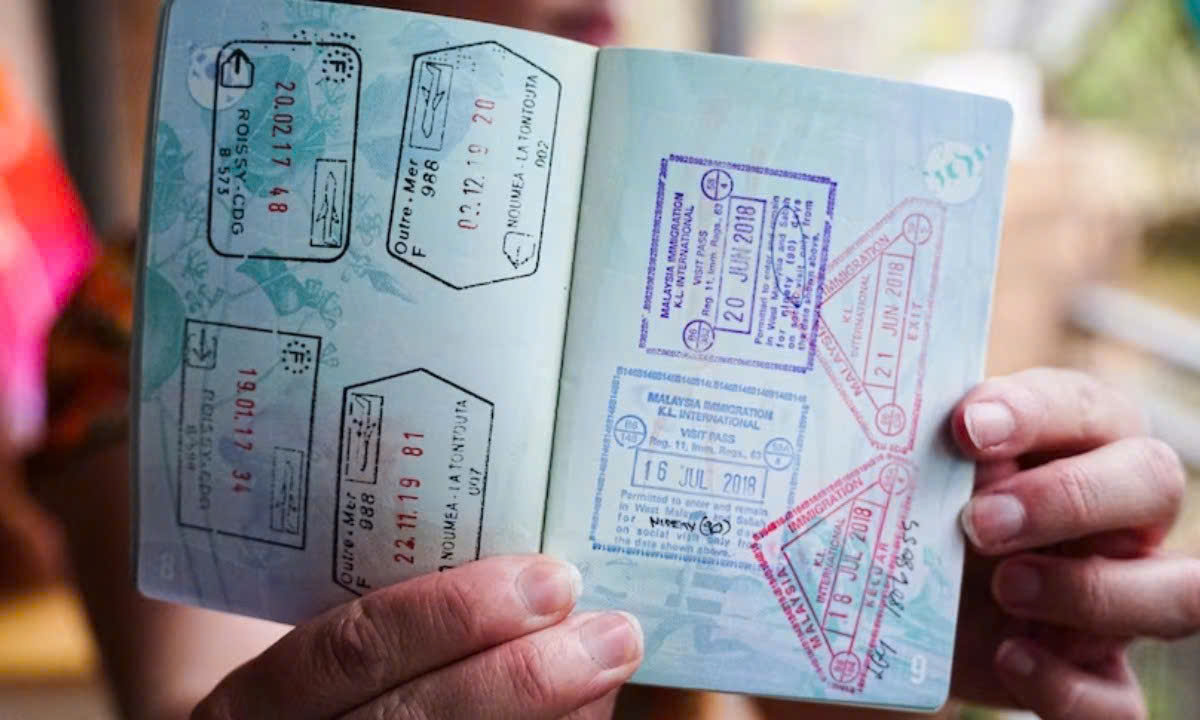 F
20.02.17 48
ROISSY-CDG
8573
Outre-Mer
988
F
02.12.19 20
NOUMEA-LA TONTOUTA
002
F
19.01.17 34
ROISSY-CDG
Outre-Mer
988
F
22.11.19 81
NOUMEA-LA TONTOUTA
007
8
MALAYSIA IMMIGRATION
K.L. INTERNATIONAL
VISIT PASS
Reg. 11, Imm. Regs., 63
20 JUN 2018
Permitted to enter and remain
in West Malaysia and Sabah
for ninety (90) days
on social visit only from
the date shown above.
IMMIGRATION
K.L.
INTERNATIONAL
MALAYSIA
21 JUN 2018
EXIT
MALAYSIA IMMIGRATION
K.L. INTERNATIONAL
VISIT PASS
Reg. 11, Imm. Regs., 63
16 JUL 2018
Permitted to enter and remain
in West Malaysia Sabah
for NINETY (90) da
on social visit only from
the date shown above.
IMMIGRATION
K.L.
INTERNATIONAL
MALAYSIA
18 JUL 2018
KELUAR
9